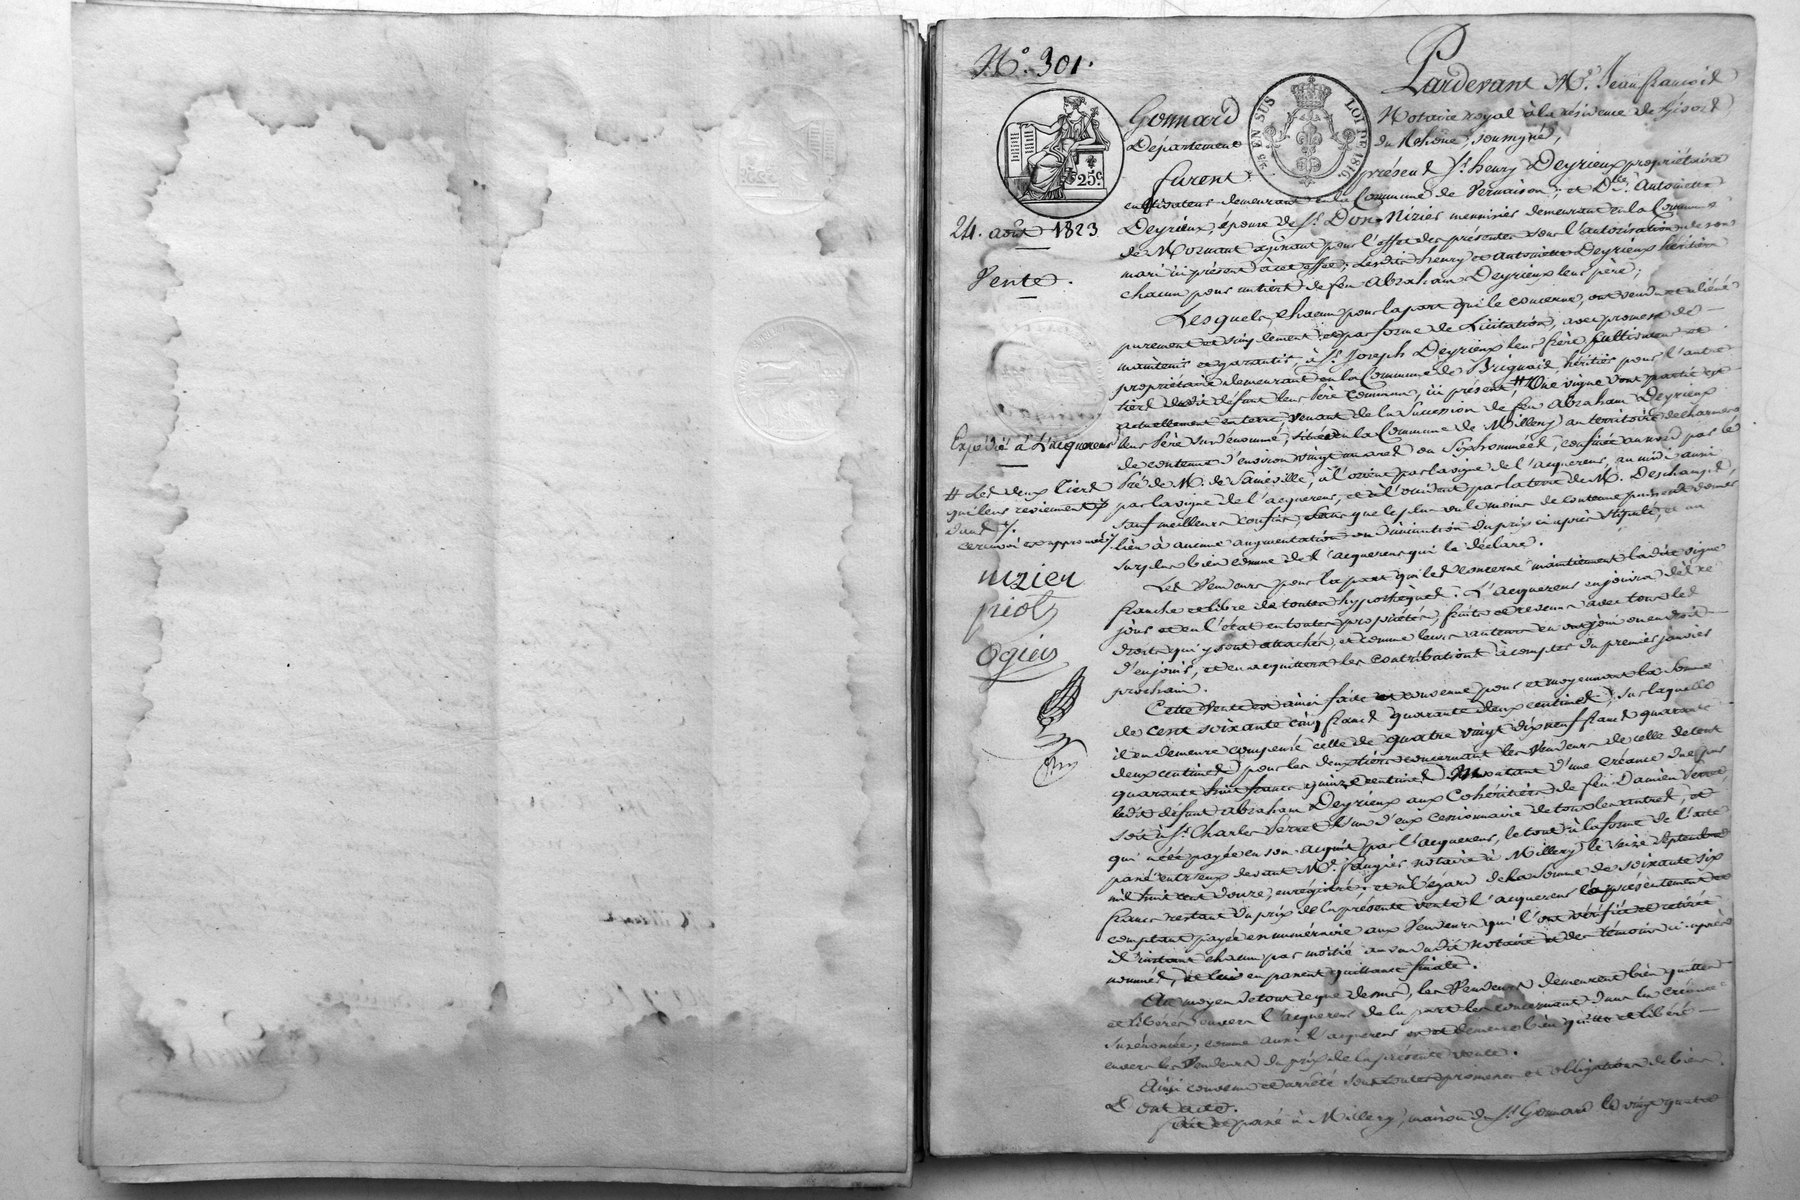 N.º 301.
24. août 1823
Vente.
Expédié à l'acquereur
# Les deux tiers
qui leur reviennent
dans
ce renvoi est approuvé
nizier
piot
Ogier
25 EN SUS
LOI DE 1816
25 c.
Pardevant M.e Jean francois
Gonnard Notaire royal à la résidence de Givors
Departement du Rhône, soussigné,
furent présens S.r henry Deyrieux propriétaire
cultivateur demeurant en la Commune de Vernaison; et D.lle Antoinette
Deyrieux, épouse de S.r Don-Nizier menuisier demeurant en la Commune
de Mornant agissant pour l'effet des présentes sous l'autorisation de son
mari ici présent à cet effet; lesdits henry et antoinette Deyrieux héritiers
chacun pour un tiers de feu abraham Deyrieux leur père;
Lesquels, chacun pour la part qui le concerne, ont vendu et aliéné
purement et simplement et par forme de Licitation, avec promesse de
maintenir et garantir, à S.r Joseph Deyrieux leur frère
propriétaire demeurant en la Commune de Brignais, héritier pour l'autre
tiers dudit défunt leur père commun, ici présent, # Une vigne dont partie est
actuellement en terre, venant de la Succession de feu abraham Deyrieux
leur père surdénommé, située en la Commune de Millery au territoire de
de contenue d'environ vingt un ares ou Six hommées, confinée au nord par le
pré de M. de Sameville, à l'orient par la vigne de l'acquereur, au midi aussi
par la vigne de l'acquereur, et à l'occident par la terre de M. Deschamps,
sauf meilleurs confins, sans que le plus ou le moins de contenue puissent donner
lieu à aucune augmentation ou diminution du prix ci-après stipulé, et au
surplus bien connue de l'acquereur qui le déclare.
Les Vendeurs pour la part qui les concerne maintiennent ladite vigne
franche et libre de toutes hypothèques. L'acquereur en jouira dès ce
jour et en l'état en toutes propriétés, fruits et revenus avec tous les
droits qui y sont attachés, et comme leurs auteurs en ont joui ou eu droit
d'en jouir, et en acquittera les contributions à compter du premier janvier
prochain.
Cette vente est ainsi faite et convenue pour et moyennant la somme
de cent soixante cinq francs quarante deux centimes, sur laquelle
il en demeure compensé celle de quatre vingt dix neuf francs quarante
deux centimes pour les deux tiers concernant les Vendeurs de celle de cent
quarante huit francs quinze centimes Montant d'une créance due par
ledit défunt abraham Deyrieux aux Cohéritiers de feu Damien Verret,
soit à S.r Charles Verret l'un d'eux cessionnaire de tous les autres, et
qui a été payée en son acquit par l'acquereur, le tout à la forme de l'acte
passé entr'eux devant M.e Saugier notaire à Millery le seize Septembre
mil huit cent douze, enregistré; et à l'égard de la somme de soixante six
francs restant du prix de la présente vente, l'acquereur l'a présentement et
comptant payée en numéraire aux Vendeurs qui l'ont vérifiée et retirée
à l'instant chacun par moitié au vu dudit notaire et des témoins ci-après
nommés, et lui en passent quittance finale.
Au moyen de tout ce que dessus, les Vendeurs demeurent bien quittes
et libérés envers l'acquereur de la part les concernant dans la créance
susénoncée, comme aussi l'acquereur demeure bien quitte et libéré
envers les Vendeurs du prix de la présente vente.
Ainsi convenu et arrêté sous toutes promesses et obligations de biens.
Dont acte.
fait et passé à Millery, maison du S.r Gonnard le vingt quatre